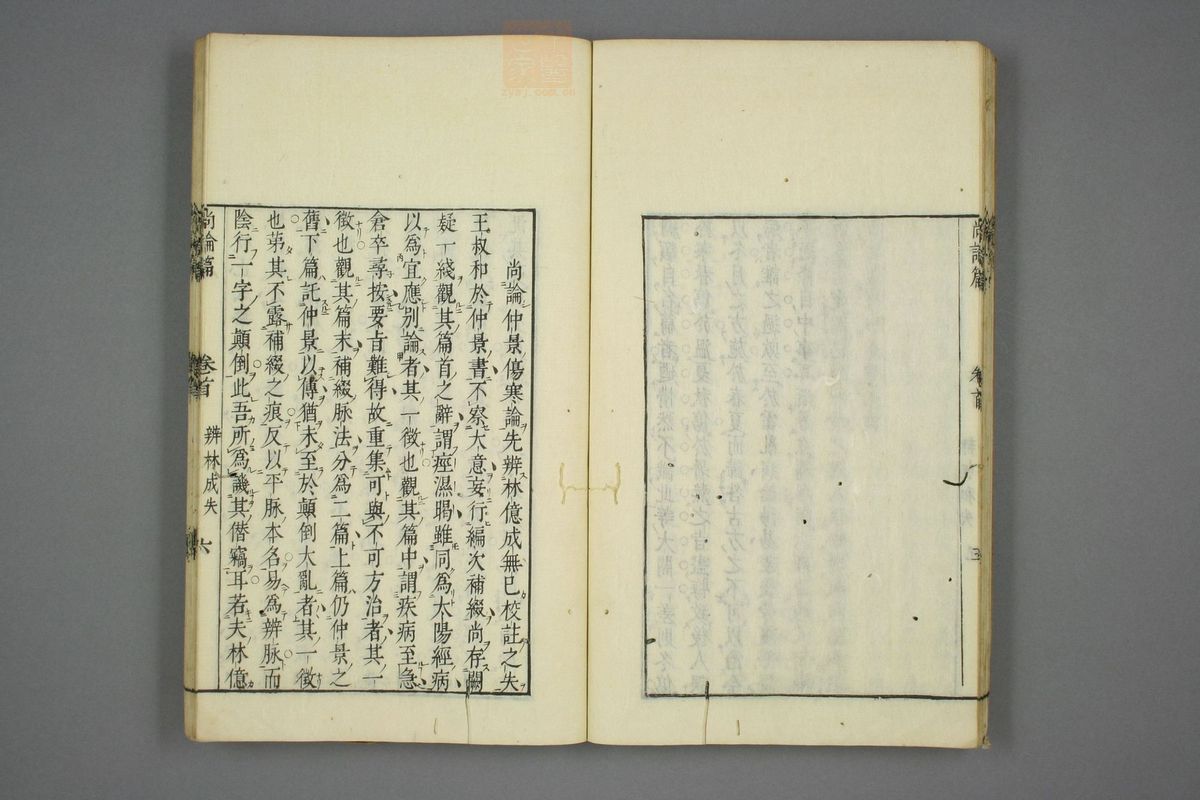 尚論篇
卷首
三
尚論仲景傷寒論先辨林億成無已校註之失
王叔和於仲景書不察大意妄行編次補綴尚存闕
疑一綫觀其篇首之辭謂痙濕暍雖同為太陽經病
以為宜應別論者其一徵也觀其篇中謂疾病至急
倉卒尋按要㫖難得故重集可與不可方治者其一
徵也觀其篇末補綴脉法分為二篇上篇仍仲景之
舊下篇託仲景以傳猶未至於顛倒大亂者其一徵
也苐其不露補綴之痕反以平脉本名易為辨脉而
陰行一字之顛倒此吾所為譏其僭竊耳若夫林億
尚論篇
卷首
辨林成失
六
zysj.com.cn